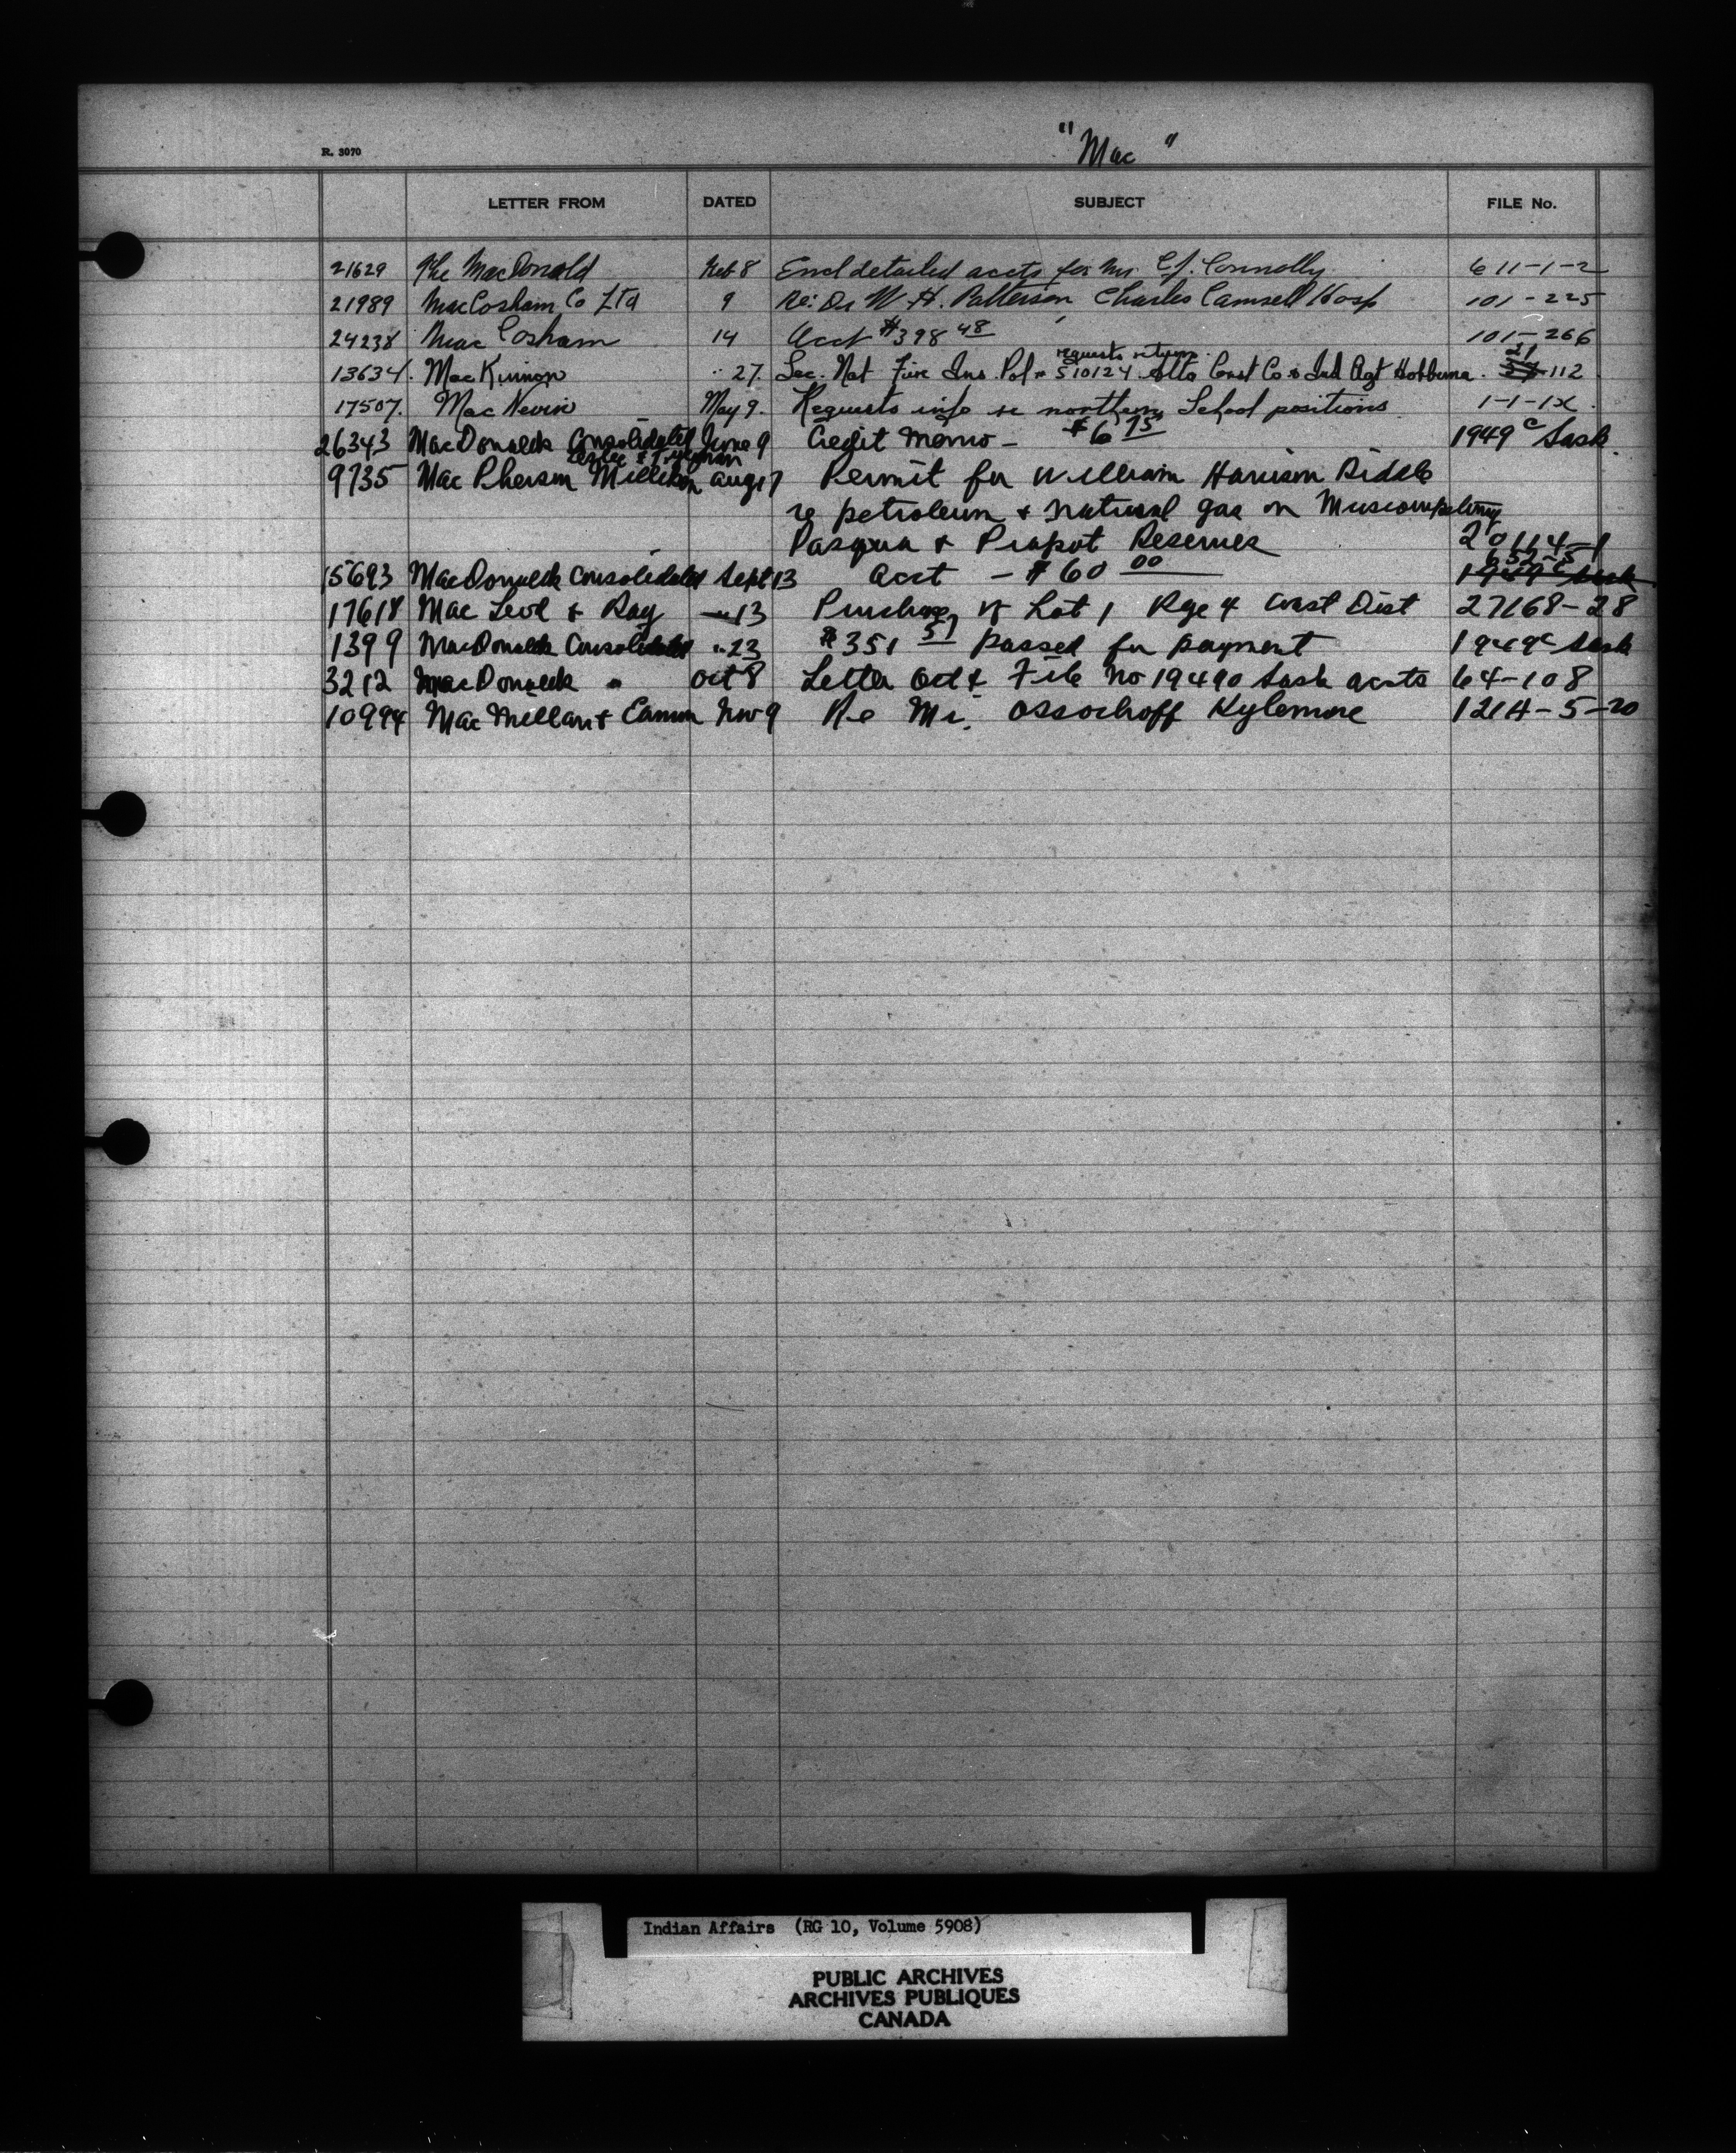 "Mac"
R. 3070
LETTER FROM DATED SUBJECT FILE No.
21629 The MacDonald Feb 8 Encl detailed accts for Mr. C.J. Connolly 611-1-2
21989 MacCosham Co Ltd 9 Re: Dr W. H. Patterson, Charles Camsell Hosp 101-225
24238 Mac Cosham 14 Acct #398 48 101-266
requests return 21
13634. MacKinnon " 27. Sec. Nat Fire Ins. Pol # 510124 Alta Const Co & Ind Agt Hobbema. 112
17507. MacNevin May 9. Requests info re northern School positions 1-1-1X.
26343 MacDonalds Consolidated June 9 Credit Memo - $6 75 1949 c Sask.
Leslie & Tyerman
9735 MacPherson Milliken Aug 17 Permit for William Harrison Riddle
re petroleum & natural gas on Muscowpetung
Pasqua & Piapot Reserves 20114-1
652-5
15693 MacDonalds Consolidated Sept 13 Acct - $60 00 1949 c Sask
17618 Mac Leod & Ray " 13 Purchase of Lot 1 Rge 4 Coast Dist 27168-28
1399 MacDonalds Consolidated " 23 $351 57 passed for payment 1949c Sask
3212 MacDonalds " Oct 8 Letter Oct & File No 19490 Sask accts 64-108
10994 MacMillan & Nov 9 Re Mr. Ossochoff Kylemore 121H-5-20
Indian Affairs (RG 10, Volume 5908)
PUBLIC ARCHIVES
ARCHIVES PUBLIQUES
CANADA